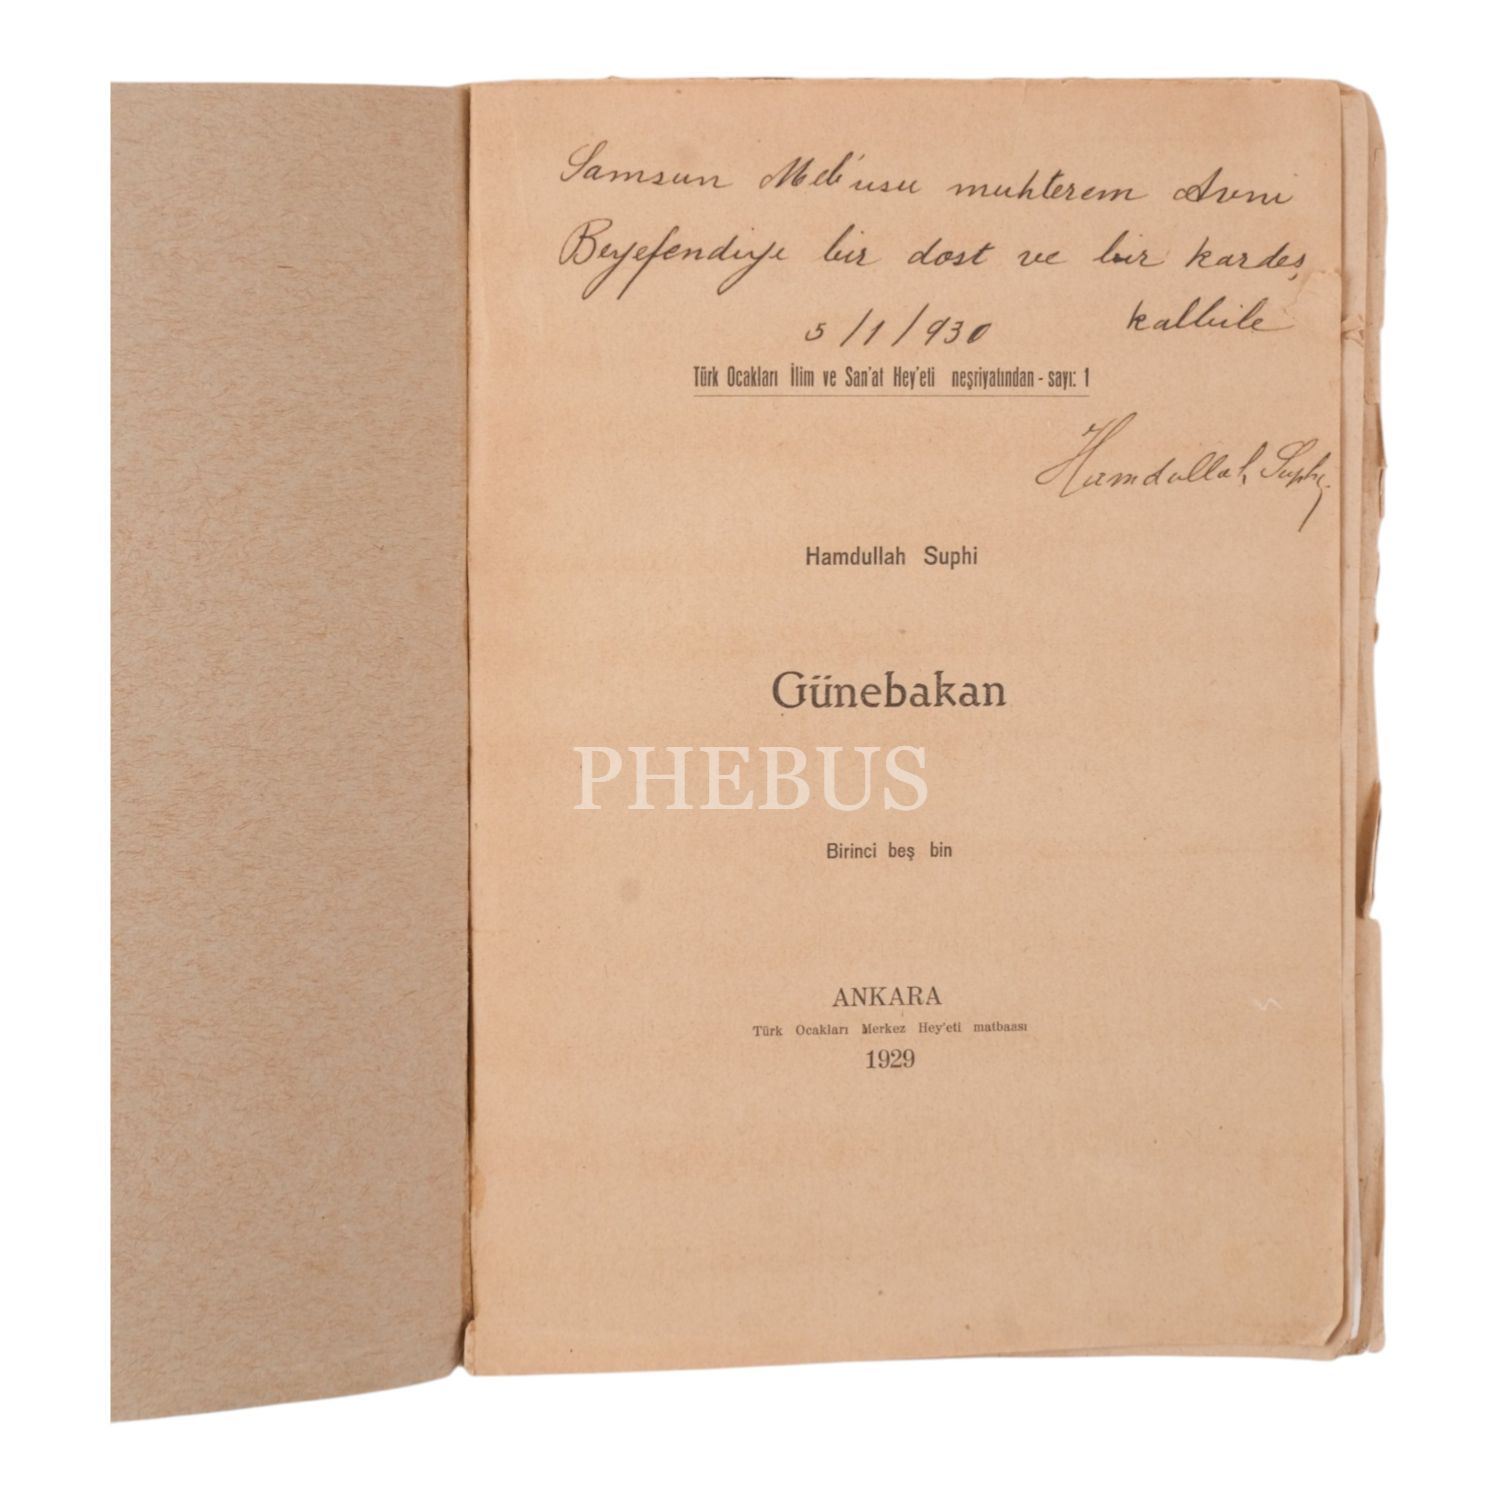 Samsun Meb'usu muhterem Avni
Beyefendiye bir dost ve bir kardeş
kalbile
5/1/930
Türk Ocakları İlim ve San'at Hey'eti neşriyatından - sayı: 1
Hamdullah Suphi
Hamdullah Suphi
Günebakan
PHEBUS
Birinci beş bin
ANKARA
Türk Ocakları Merkez Hey'eti matbaası
1929